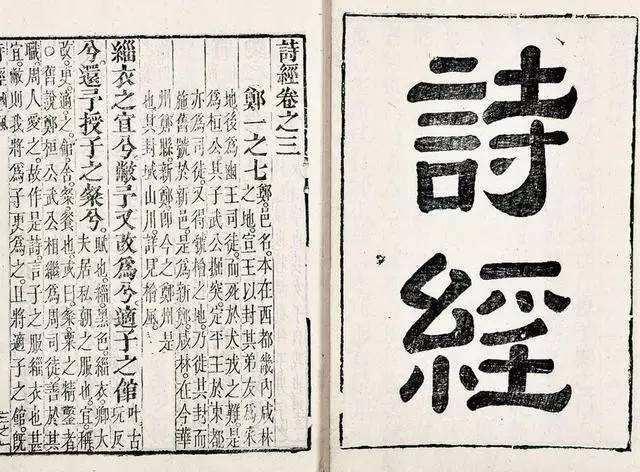 詩經
詩經卷之三
鄭一之七 鄭邑名。本在西都畿內咸林
之地。宣王以封其弟友為采
地後為幽王司徒。而死於犬戎之難。是
為桓公其子武公掘突定平王於東都
亦為司徒又得虢檜之地。乃徙其封而
施舊號於新邑。是為新鄭。咸林。在今華
州鄭縣新鄭即今之鄭州是
也其封域山川詳見檜風
緇衣之宜兮。敝予又改為兮。適子之館 叶古
玩反
兮。還予授子之粲兮。 賦也。緇黑色。緇衣卿大
夫居私朝之服也。宜稱
改。更。適之。館舍。粲餐也。或曰粲粟之精鑿者
○舊說鄭桓公武公相繼為周司徒善於其
職。周人愛之。故作是詩。言子之服緇衣也甚
宜。敝則我將為子更為之。且將適子之館。既
詩經國風